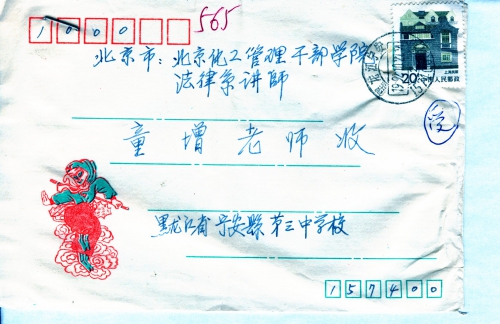 1 0 0 0 0
565
北京市：北京化工管理干部学院
法律系讲師
童增老师收
受
黑龙江省宁安縣第三中学校
157400
20分
中国人民邮政
上海民居